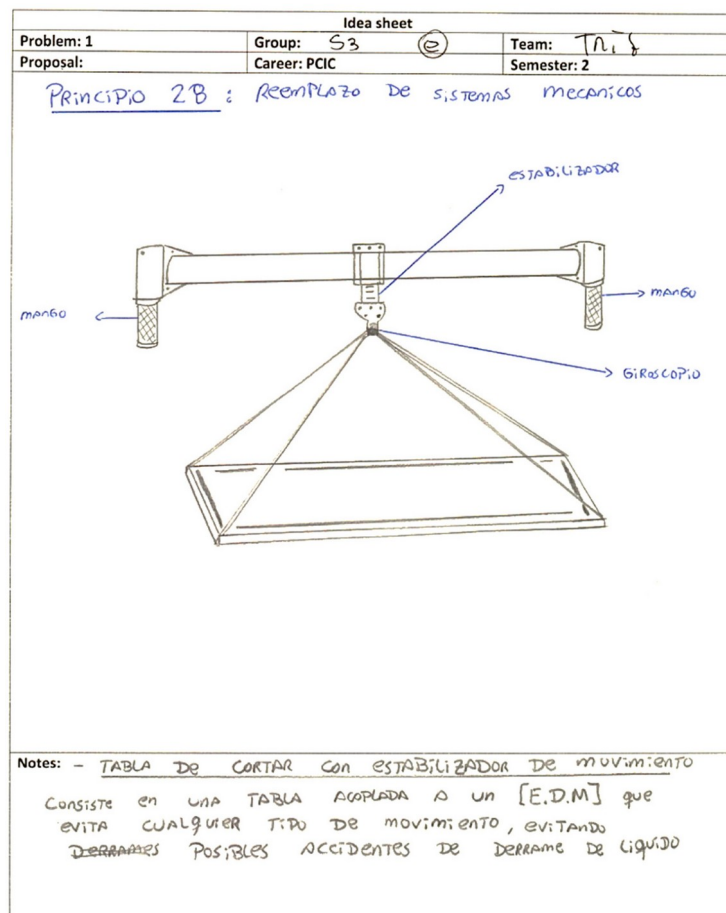 Idea sheet
Problem: 1 Group: S3 e Team:
Proposal: Career: PCIC Semester: 2
PRINCIPIO 28 : REEMPLAZO DE SISTEMAS MECANICOS
ESTABILIZADOR
MANGO
MANGO
GIROSCOPIO
Notes: - TABLA DE CORTAR CON ESTABILIZADOR DE MUVIMIENTO
CONSISTE EN UNA TABLA ACOPLADA A UN [E.D.M] QUE
EVITA CUALQUIER TIPO DE MOVIMIENTO, EVITANDO
DERRAMES POSIBLES ACCIDENTES DE DERRAME DE LIQUIDO